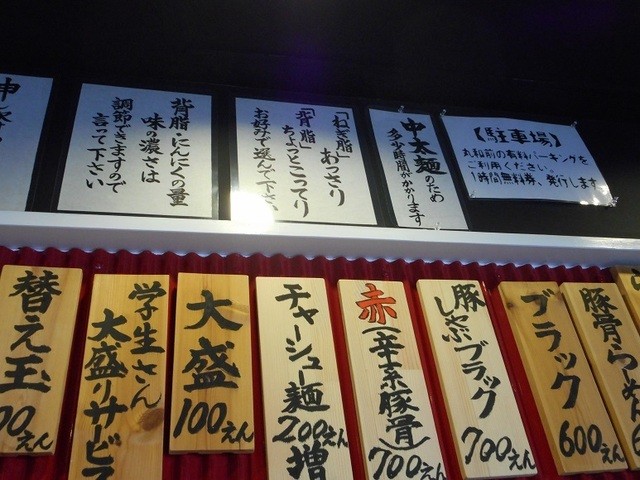 【駐車場】
丸和前の有料パーキングを
ご利用ください。
1時間無料券、発行します
中太麺のため
多少時間がかかります
「ねぎ脂」あっさり
「背脂」ちょっとこってり
お好みで選んで下さい
背脂・にんにくの量
味の濃さは
調節できますので
言って下さい
豚骨らーめん
ブラック
600えん
豚しゃぶブラック
700えん
赤(辛系豚骨)
700えん
チャーシュー麺
200えん増
大盛
100えん
学生さん
大盛りサービス
替え玉
00えん